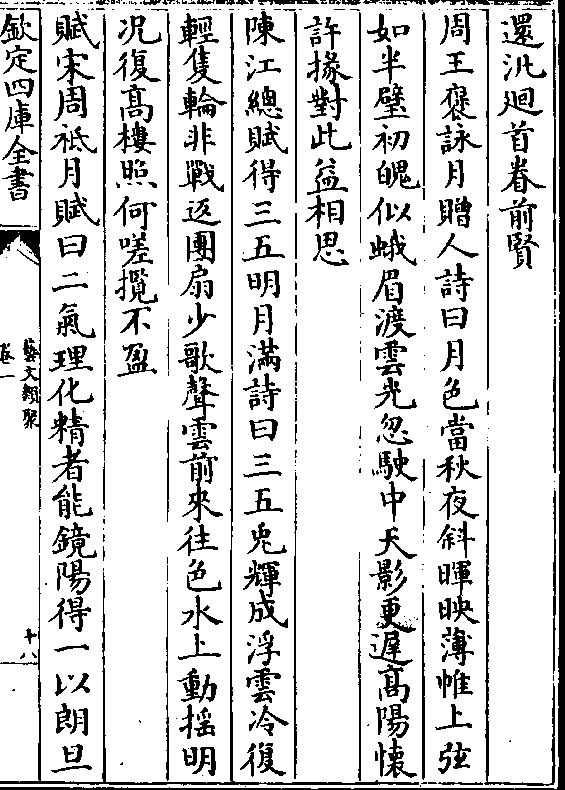 還汎廻首眷前賢
周王褒詠月贈人詩曰月色當秋夜斜暉映薄帷上弦
如半璧初魄似蛾眉渡雲光忽駛中天影更遲高陽懷
許掾對此益相思
陳江總賦得三五明月滿詩曰三五兎輝成浮雲冷復
輕隻輪非戰返團扇少歌聲雲前來往色水上動揺明
况復高樓照何嗟攬不盈
賦宋周祗月賦曰二氣理化精者能鏡陽得一以朗旦
欽定四庫全書
藝文類聚
卷一
十八